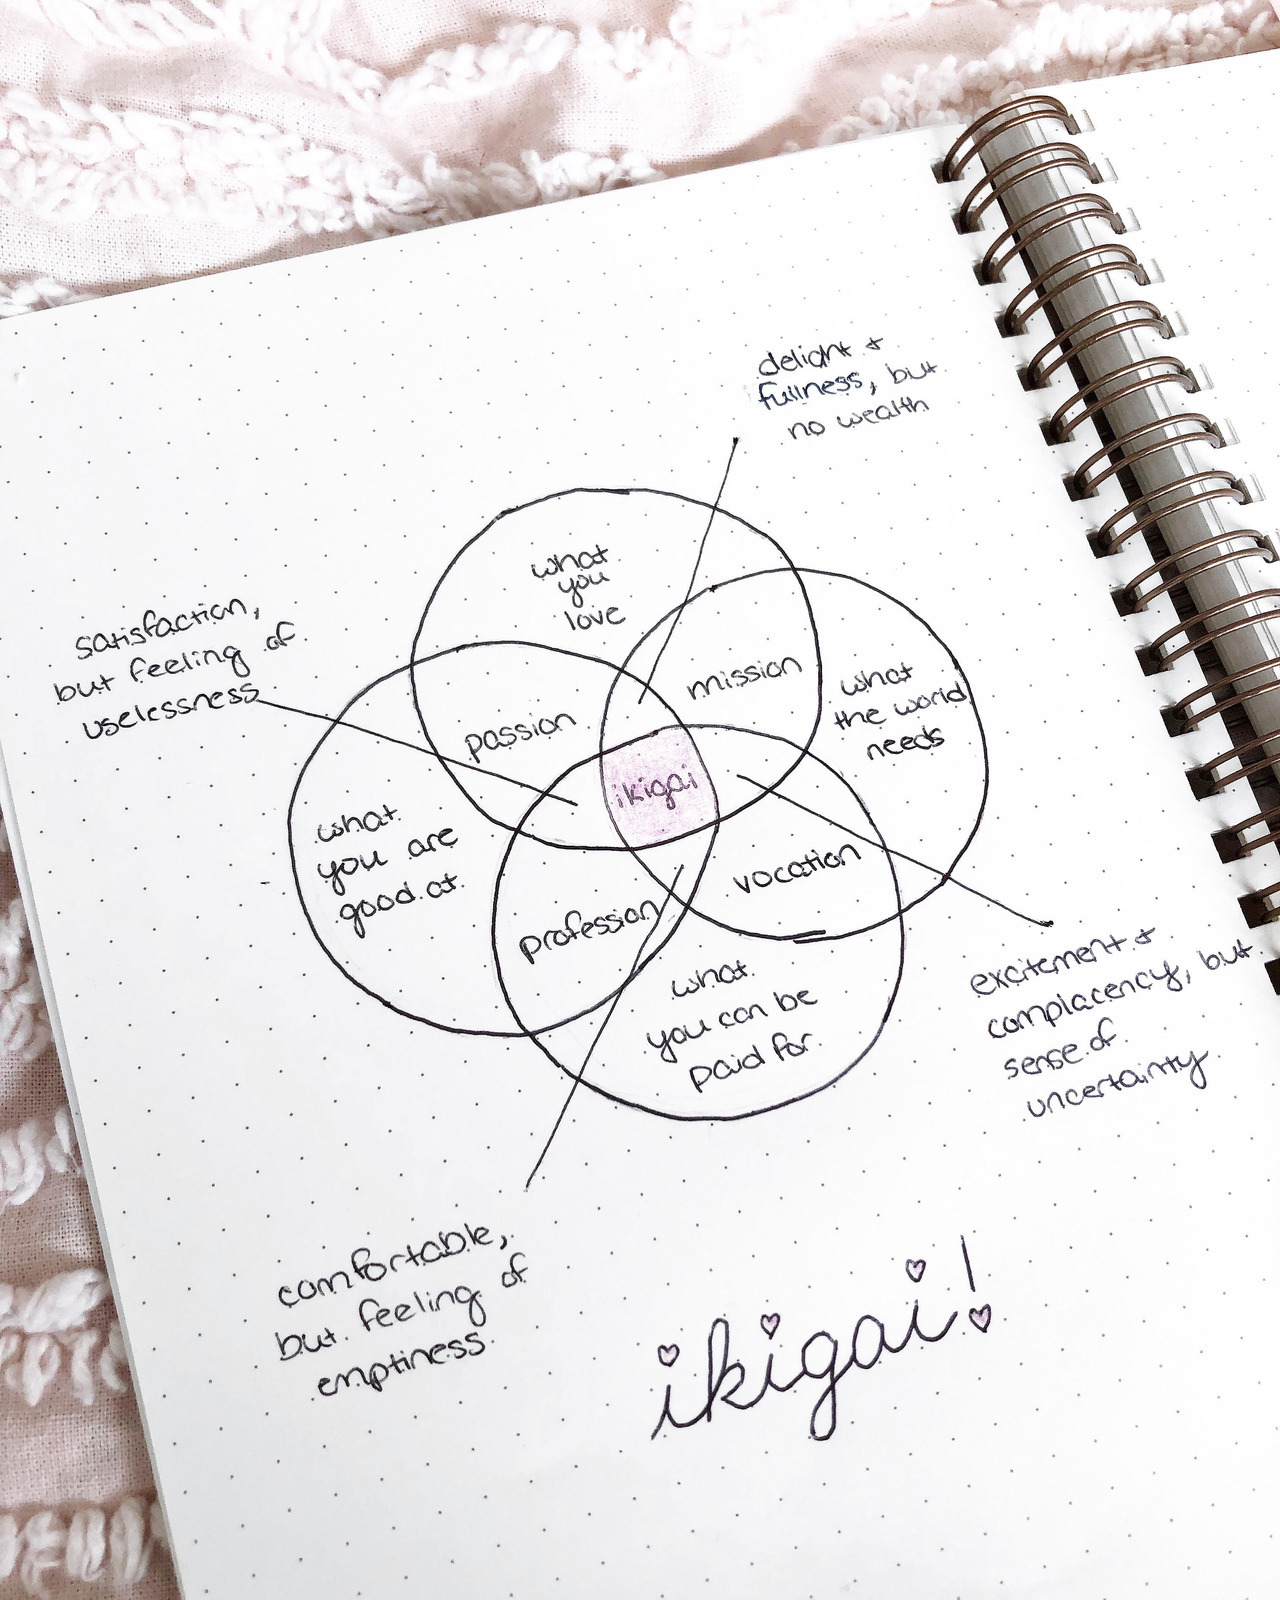 delight &
fullness, but
no wealth
what
you
love
satisfaction,
but feeling of
uselessness
mission
what
the world
needs
passion
ikigai
what
you are
good at
vocation
profession
what
you can be
paid for
excitement &
complacency, but
sense of
uncertainty
comfortable,
but feeling of
emptiness
ikigai!